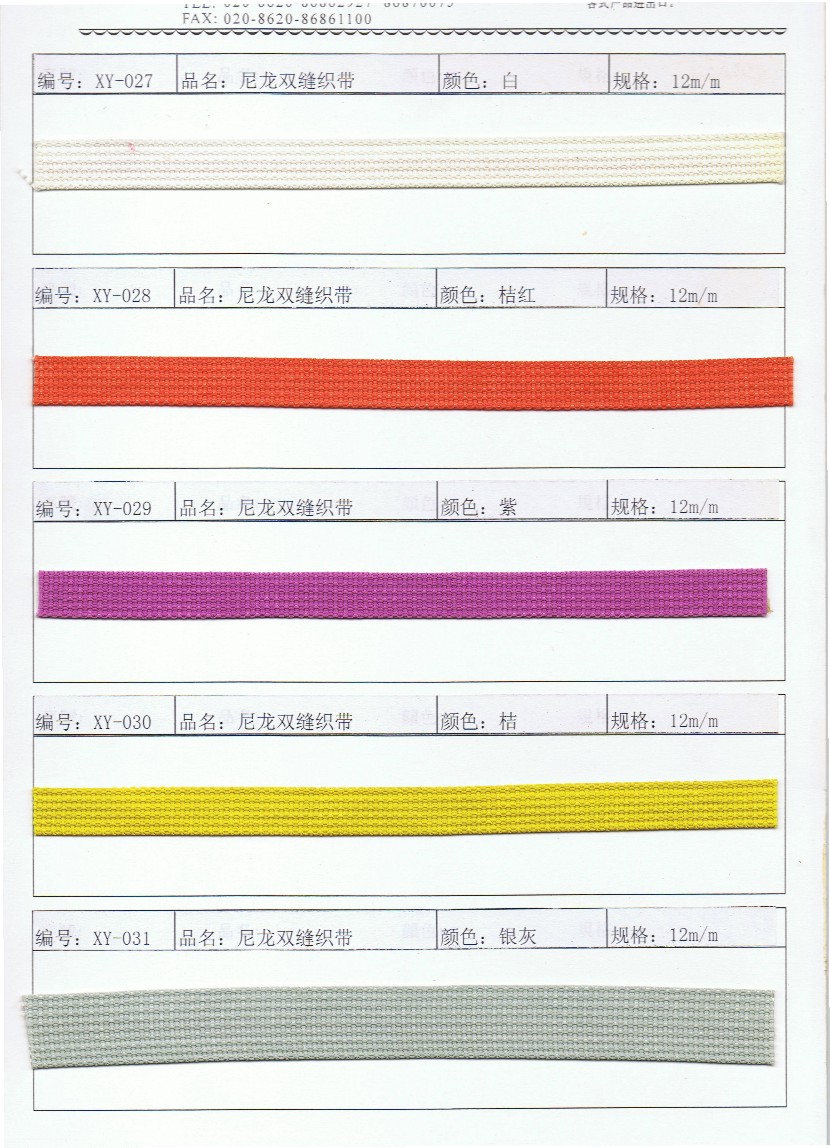 FAX: 020-8620-86861100
编号: XY-027 品名: 尼龙双缝织带 颜色: 白 规格: 12m/m
编号: XY-028 品名: 尼龙双缝织带 颜色: 桔红 规格: 12m/m
编号: XY-029 品名: 尼龙双缝织带 颜色: 紫 规格: 12m/m
编号: XY-030 品名: 尼龙双缝织带 颜色: 桔 规格: 12m/m
编号: XY-031 品名: 尼龙双缝织带 颜色: 银灰 规格: 12m/m